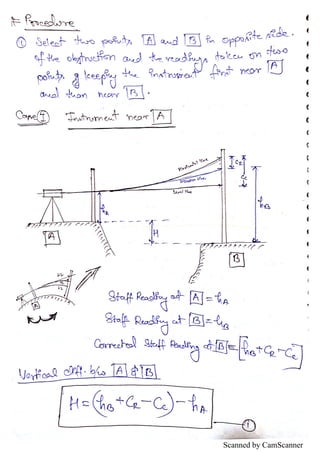 Procedure
① Select two points [A] and [B] in opposite side.
of the obstruction and the readings taken on two
points by keeping the instrument first near [A]
and then near [B].
Case ① Instrument near [A]
Horizontal line
Level line
CR
Cc
hB
hA
H
[A]
[B]
Staff Reading at [A] = hA
Staff Reading at [B] = hB
Corrected Staff Reading at [B] = [hB + CR - Cc]
Vertical diff. b/w [A] & [B]
H = (hB + CR - Cc) - hA
①
Scanned by CamScanner